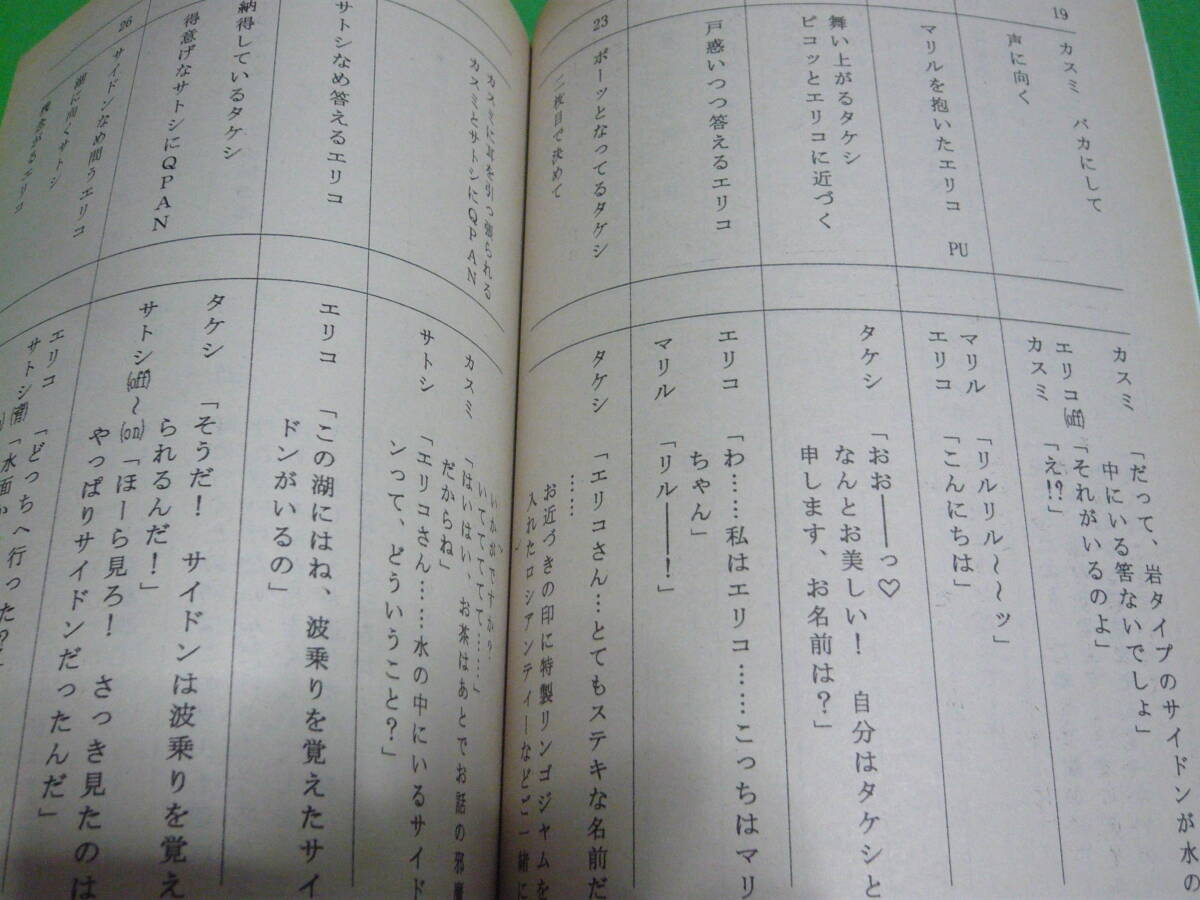 19
カスミ バカにして
声に向く
マリルを抱いたエリコ PU
舞い上がるタケシ
ピコッとエリコに近づく
戸惑いつつ答えるエリコ
23
ポーッとなってるタケシ
二枚目で決めて
カスミ 「だって、岩タイプのサイドンが水の
中にいる筈ないでしょ」
エリコ(off)「それがいるのよ」
カスミ 「え!?」
マリル 「リルリル〜〜ッ」
エリコ 「こんにちは」
タケシ 「おお――っ♡
なんとお美しい! 自分はタケシと
申します、お名前は?」
エリコ 「わ……私はエリコ……こっちはマリ
ちゃん」
マリル 「リル――!」
タケシ 「エリコさん…とてもステキな名前だ
……
お近づきの印に特製リンゴジャムを
入れたロシアンティーなどご一緒に
カスミに耳を引っ張られる
カスミとサトシにQPAN
サトシなめ答えるエリコ
納得しているタケシ
得意げなサトシにQPAN
26
サイドンなめ問うエリコ
湖に向くサトシ
エリコ
いかがですか?
いてててて……」
カスミ 「はいはい、お茶はあとでお話の邪魔
だからね」
サトシ 「エリコさん……水の中にいるサイド
ンって、どういうこと?」
エリコ 「この湖にはね、波乗りを覚えたサイ
ドンがいるの」
タケシ 「そうだ! サイドンは波乗りを覚え
られるんだ!」
サトシ(off)〜(on)「ほーら見ろ! さっき見たのは
やっぱりサイドンだったんだ」
エリコ 「どっちへ行った?」
サトシ(背)「水面か